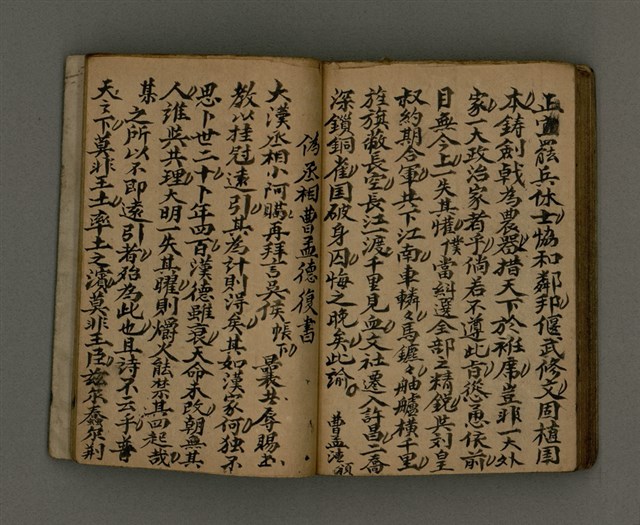 正宜罷兵休士協和鄰邦偃武修文周植国
本鋳劍戟為農器措天下於袵席豈非一大外
家一大政治家者乎倘若不遵此旨怂恿依前
目無今上一失其權僕當糾選全部之精銳與刘皇
叔約期合軍共下江南車轔々馬鑣々舳艫橫千里
旌旗蔽長空長江一渡千里見血文社遷入許昌二喬
深鎖銅雀国破身囚悔之晚矣此諭。
曹孟德頓
偽丞相曹孟德復書
大漢丞相小阿瞞再拜言吳侯帳下
曩裘共辱賜書
教以挂冠遠引其為計則得矣其如漢家何独不
思卜世二十卜年四百漢德雖衰天命未改朝無其
人誰與共理大明一失其曜則爝火能禁其四起哉
某之所以不即遠引者殆為此也且詩不云乎普
天之下莫非王土率土之濱莫非王臣玆尔蠢尔荆